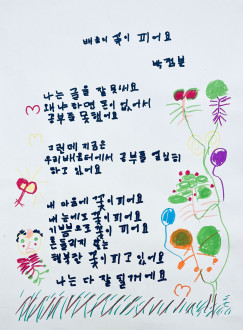 배움의 꽃이 피어요
박점분
나는 글을 잘 못써요
왜냐하면 돈이 없어서
공부를 못했어요
그런데 지금은
우리배움터에서 공부를 열심히
하고 있어요
내 마음에 꽃이피어요
내 눈에도 꽃이피어요
기쁨으로 꽃이 피어요
흔들리지 않는
행복한 꽃이 피고 있어요
나는 다 잘 될거에요